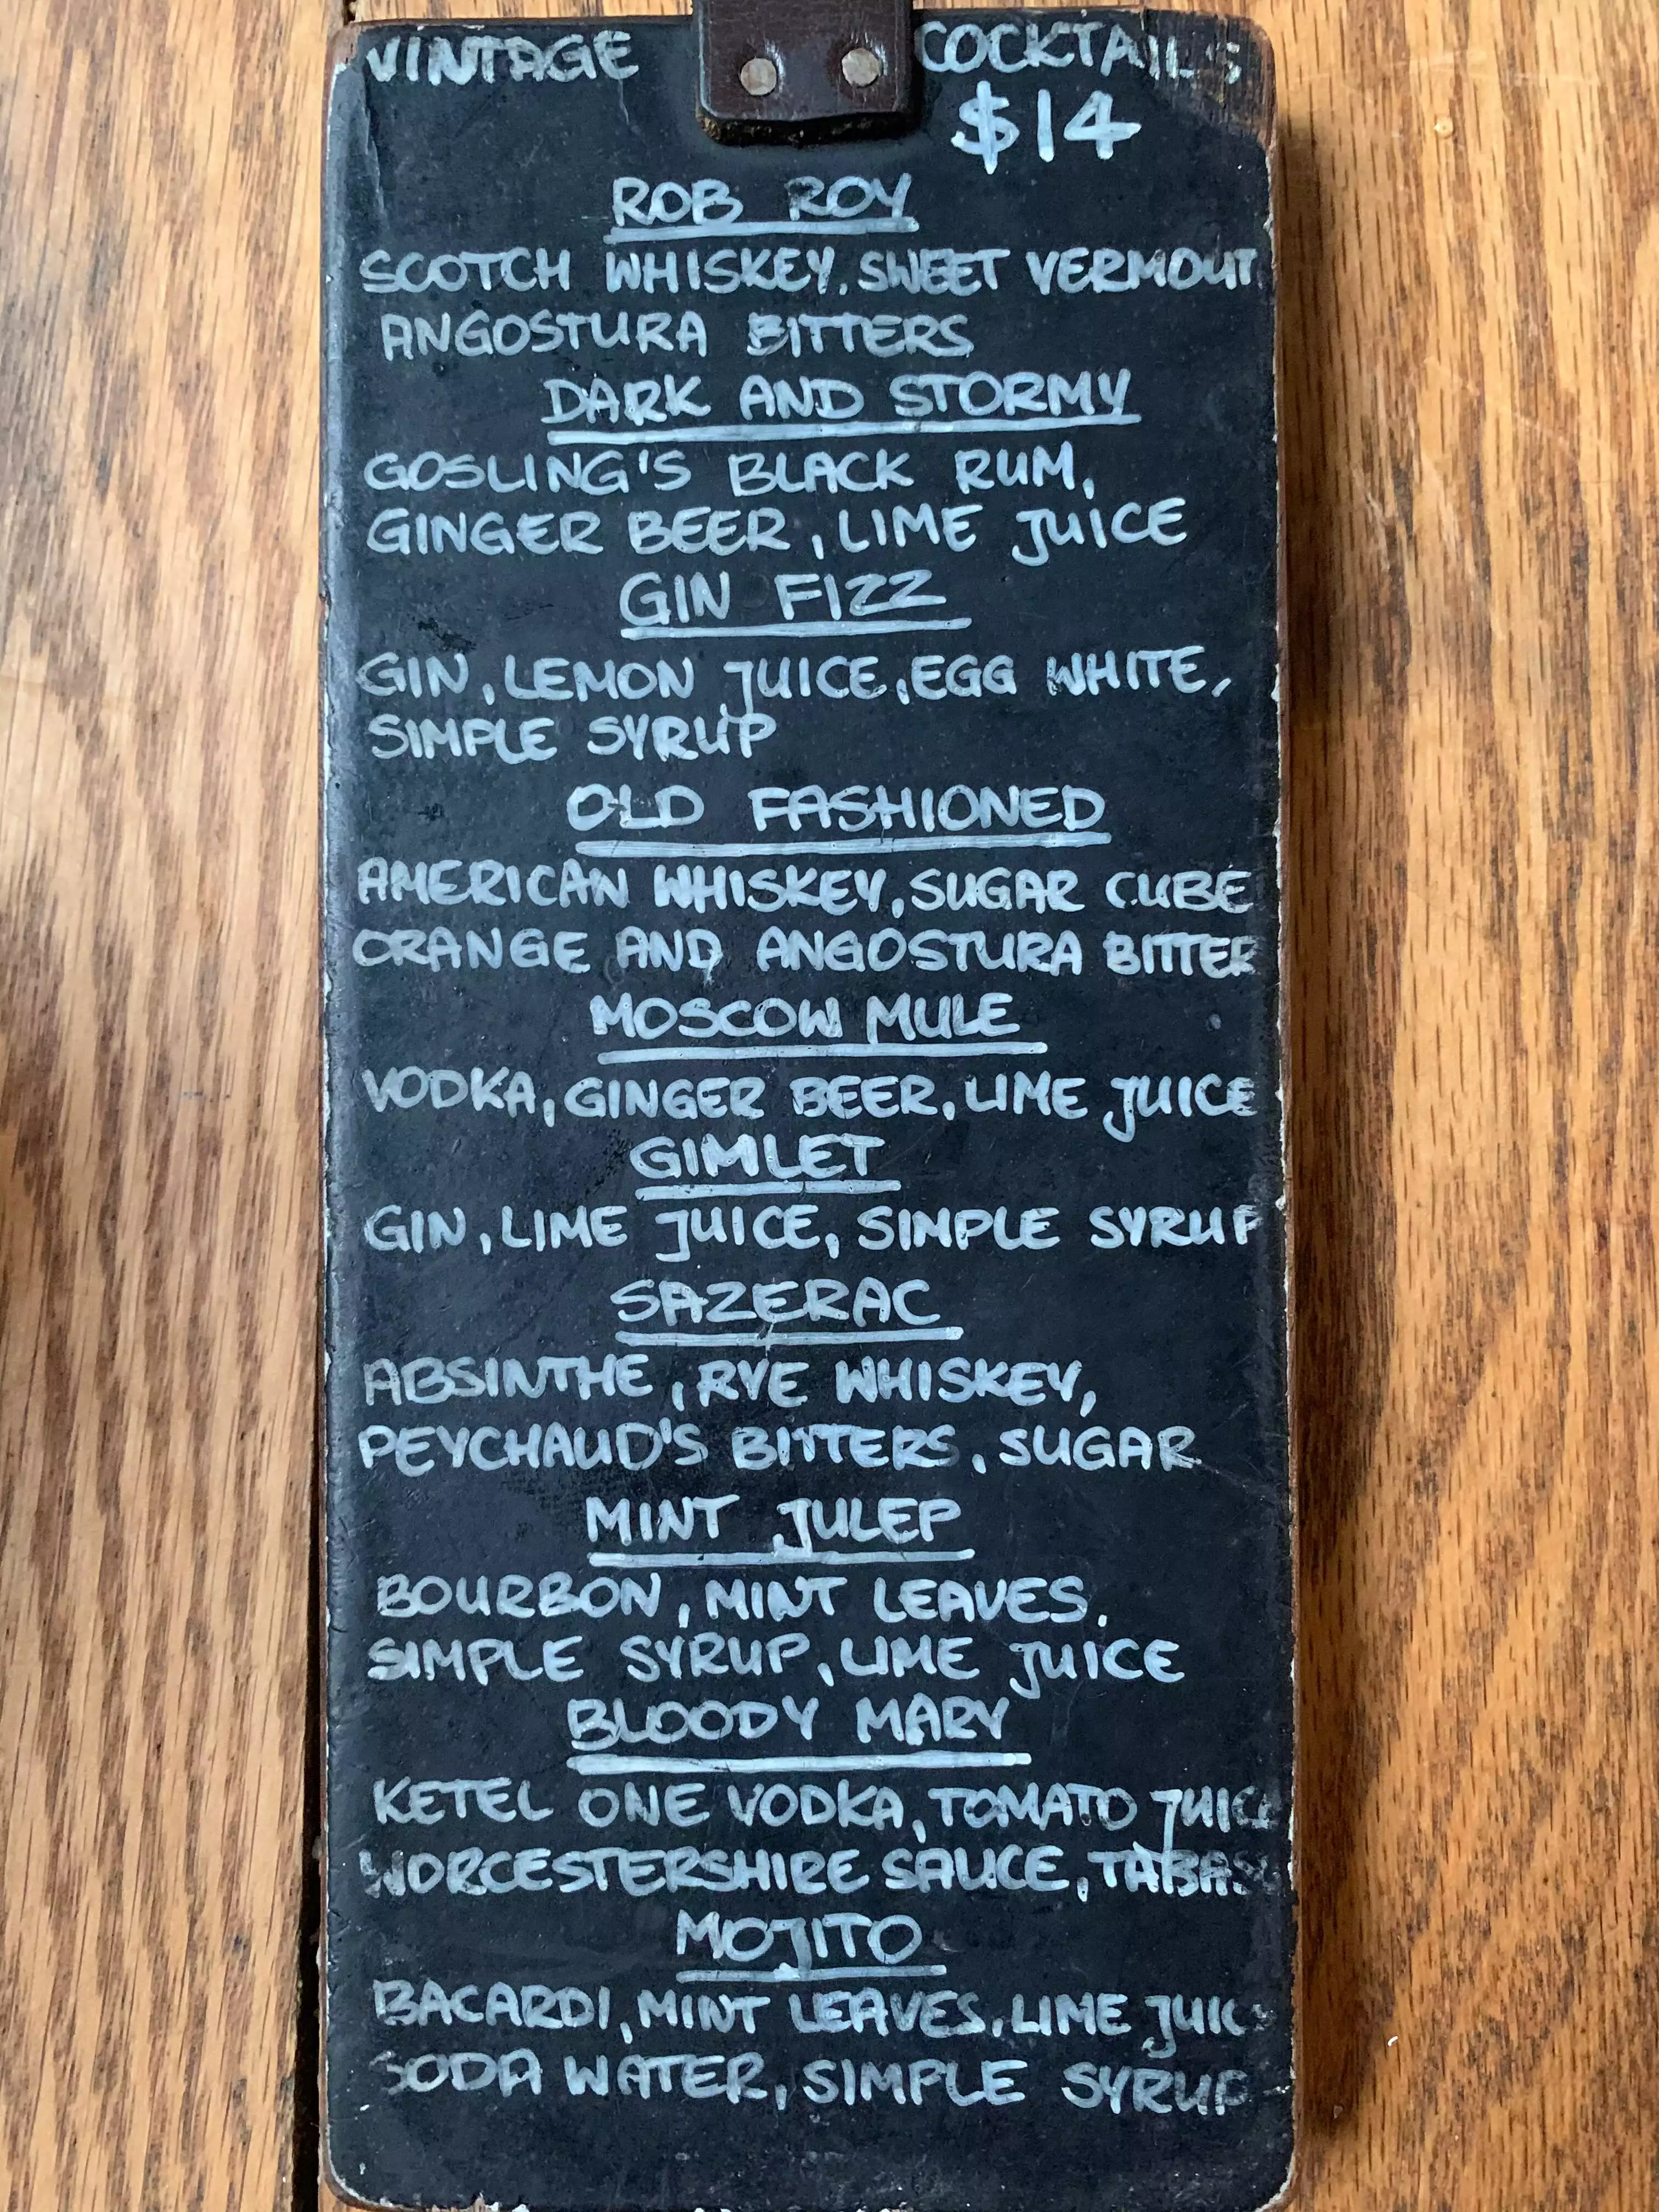 VINTAGE COCKTAILS
$14
ROB ROY
SCOTCH WHISKEY, SWEET VERMOUT
ANGOSTURA BITTERS
DARK AND STORMY
GOSLING'S BLACK RUM,
GINGER BEER, LIME JUICE
GIN FIZZ
GIN, LEMON JUICE, EGG WHITE,
SIMPLE SYRUP
OLD FASHIONED
AMERICAN WHISKEY, SUGAR CUBE
ORANGE AND ANGOSTURA BITTER
MOSCOW MULE
VODKA, GINGER BEER, LIME JUICE
GIMLET
GIN, LIME JUICE, SIMPLE SYRUP
SAZERAC
ABSINTHE, RYE WHISKEY,
PEYCHAUD'S BITTERS, SUGAR
MINT JULEP
BOURBON, MINT LEAVES,
SIMPLE SYRUP, LIME JUICE
BLOODY MARY
KETEL ONE VODKA, TOMATO JUICE
WORCESTERSHIRE SAUCE, TABAS
MOJITO
BACARDI, MINT LEAVES, LIME JUIC
SODA WATER, SIMPLE SYRUP